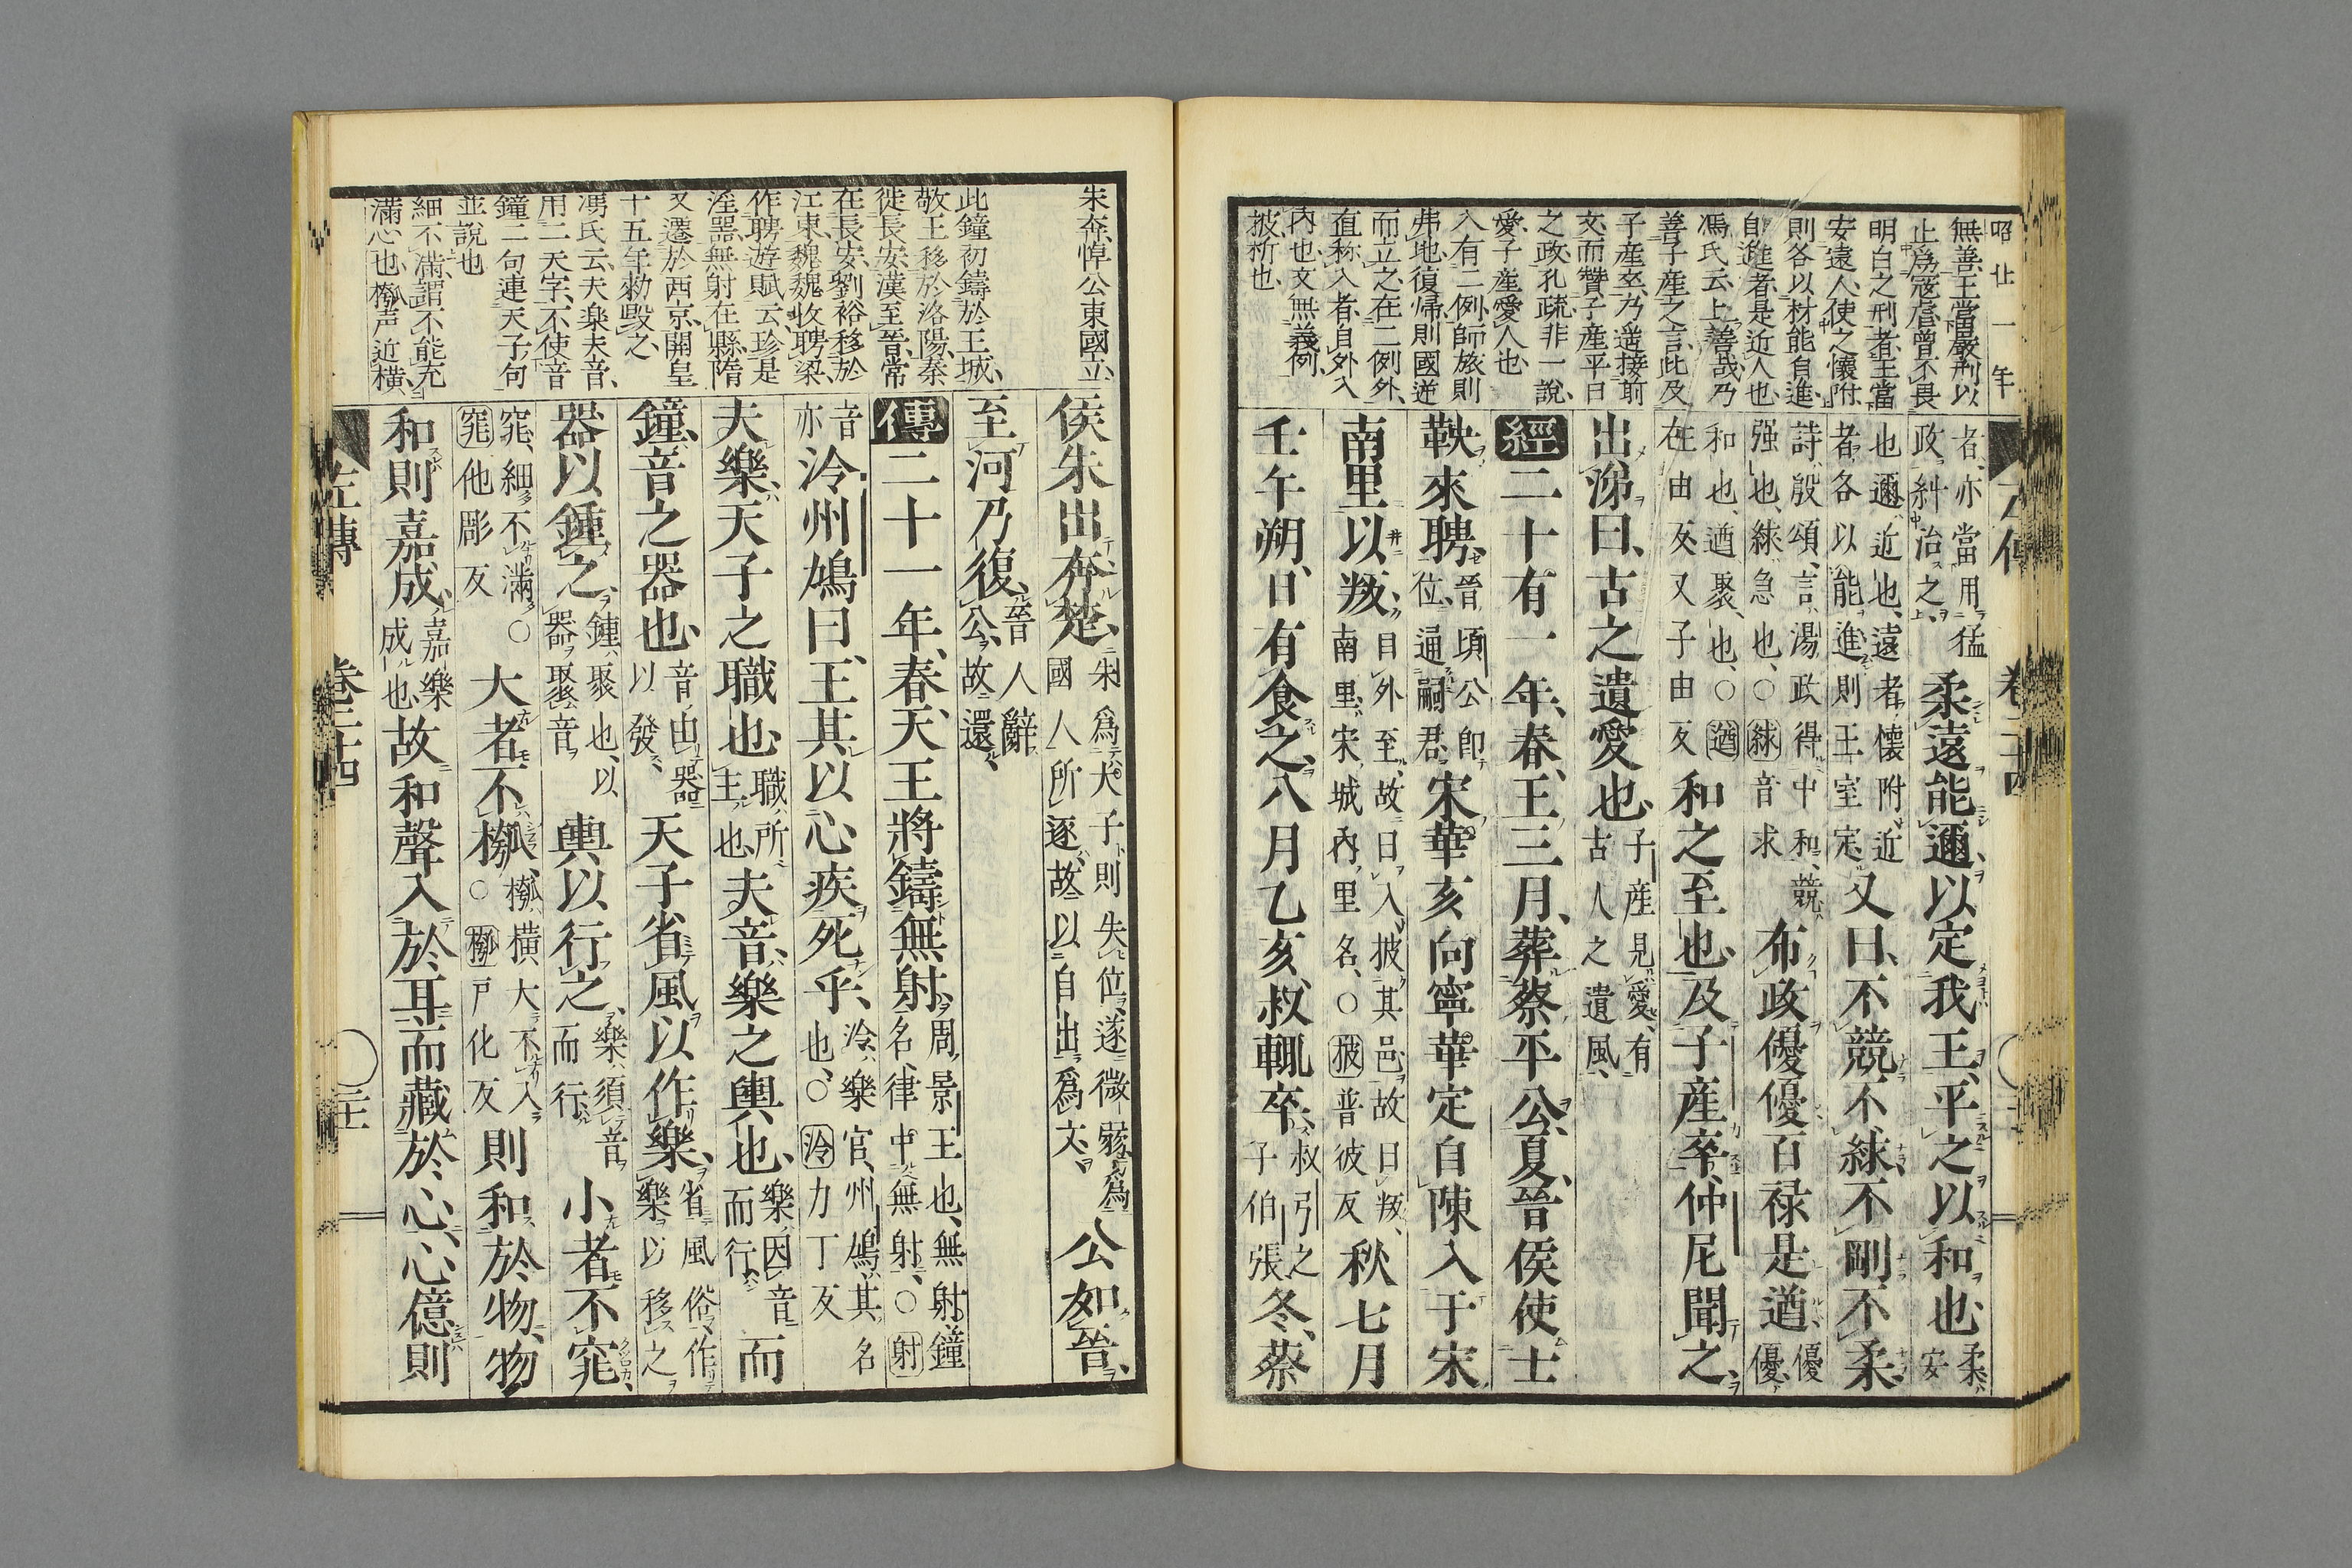 昭 廿 一 年
無善、王當嚴刑以
止爲寇虐曾不畏
明白之刑者、王當
安遠人、使之懷附、
則各以材能自進、
自進者、是近人也、
馮氏云、上善哉、乃
善子産之言、此及
子産卒、乃遥接前
文、而贊子産平日
之政、孔疏、非一說、
愛、子産愛人也、
入有二例、師旅則
弗地、復歸、則國逆
而立之、在二例外、
直称入者、自外入
內也、文無義例、
披、析也、
者、亦當用猛
政、糾治之、
柔遠能邇、以定我王、平之以和也、
柔、安
也、邇、近也、遠者懷附、近
者、各以能進、則王室定、
又曰、不競不絿、不剛不柔、
詩、殷頌、言、湯政得中和、競、
强也、絿、急也、○絿音求
布政優優、百禄是遒、
優優、
和也、遒、聚也、○遒
在由反又子由反
和之至也、及子産卒、仲尼聞之、
出涕曰、古之遺愛也、
子産見愛、有
古人之遺風、
經二十有一年、春、王三月、葬蔡平公、夏、晉侯使士
鞅來聘、
晉頃公即
位、通嗣君、
宋華亥向寧華定自陳入于宋
南里以叛、
自外至、故曰入、披其邑、故曰叛、
南里、宋城內里名、○披普彼反
秋七月
壬午朔、日有食之、八月乙亥、叔輒卒、
叔弓之
子伯張
冬、蔡
左傳 卷二十四
朱奔、悼公東國立、
此鐘初鋳於王城、
敬王移於洛陽、秦
徙長安、漢至晉常
在長安、劉裕移於
江東、魏魏收聘梁、
作聘遊賦云、珍是
淫器、無射在縣、隋
又遷於西京、開皇
十五年勅毀之、
馮氏云、夫楽夫音、
用二夫字、不使音
鐘二句連天子句
並說也
細不滿、謂不能充
滿心也、槬声近橫、
侯朱出奔楚、
朱爲大子、則失位、遂微弱、爲
國人所逐、故以自出爲文、
公如晉、
至河乃復、
晉人辭
公、故還、
傳二十一年、春、天王將鑄無射、
周景王也、無射、鐘
名、律中無射、○射
音
亦
泠州鳩曰、王其以心疾死乎、
泠、樂官、州鳩、其名
也、○泠力丁反
夫樂、天子之職也、
職、所
主也
夫音、樂之輿也、
樂因音
而行、
而
鐘、音之器也、
音、由器
以發、
天子省風以作樂、
省風俗、作
樂以移之
器以鍾之、
鍾、聚也、以
器聚音、
輿以行之、
樂、須音
而行、
小者不窕、
窕、細不滿、○
窕他彫反
大者不槬、
槬、橫大不入、
○槬戸化反
則和於物、物
和則嘉成、
嘉樂
成也
故和聲入於耳、而藏於心、心億則
左傳 卷二十四